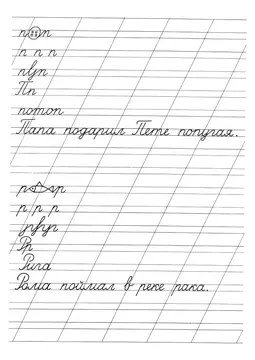 п п
п п п
пуп
Пп
потоп
Папа подарил Пете попугая.
р гр
р р р
Рр
Рига
Рома поймал в реке рака.